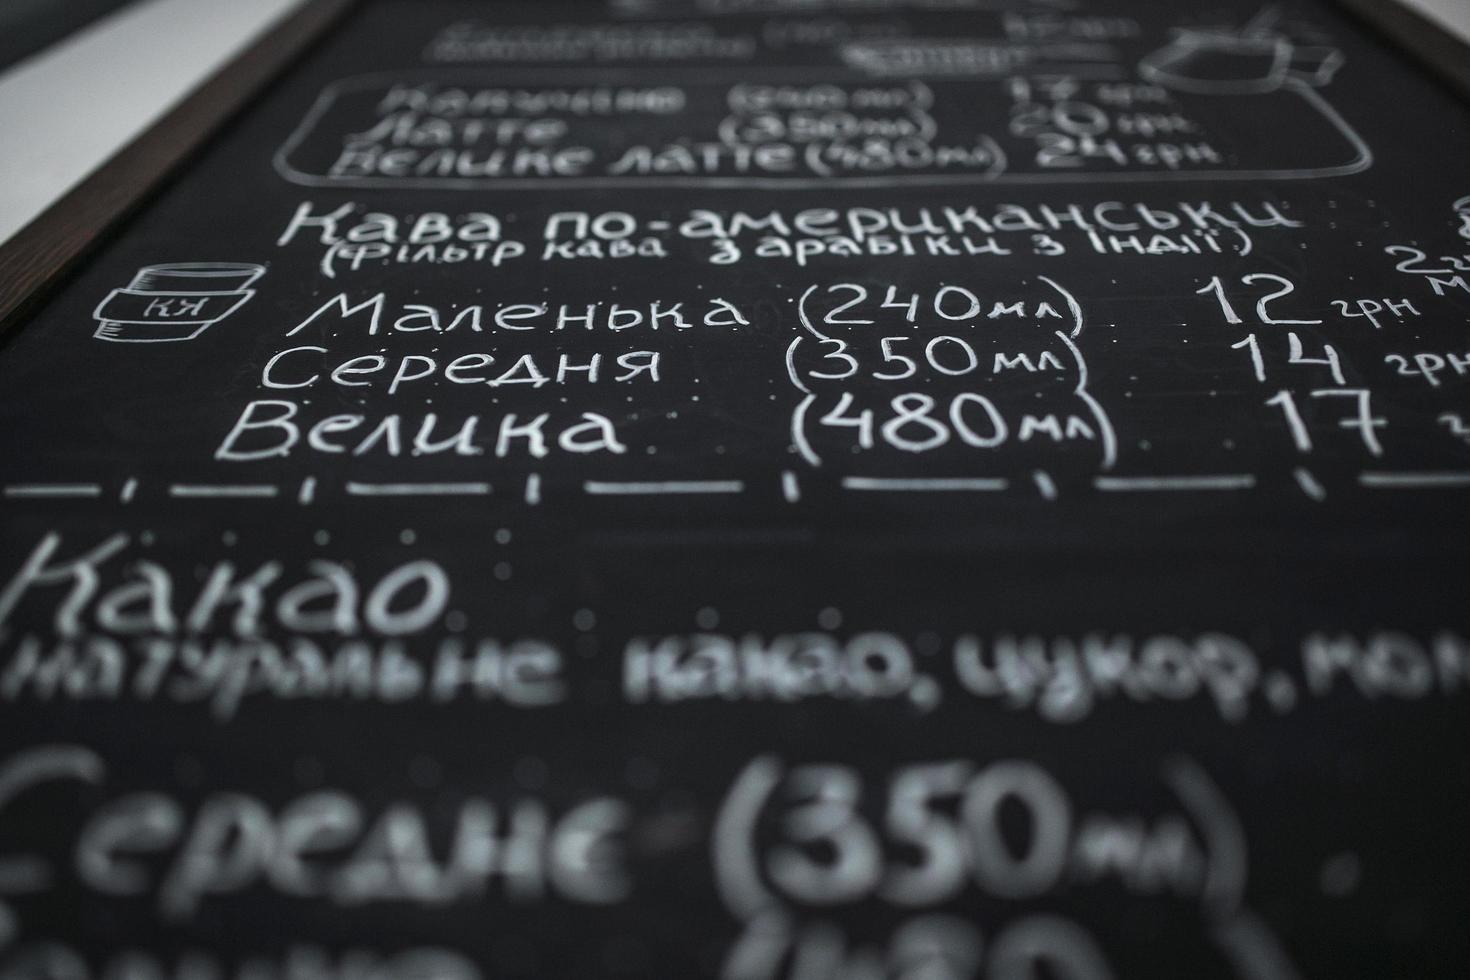 Капучіно (240 мл) 17 грн
Латте (350мл) 20 грн
Велике латте (480мл) 24 грн
Кава по-американськи
(фільтр кава з арабіки з Індії)
КЯ
Маленька (240мл) 12 грн
Середня (350мл) 14 грн
Велика (480мл) 17
Какао
натуральне какао, цукор,
Середнє (350мл)